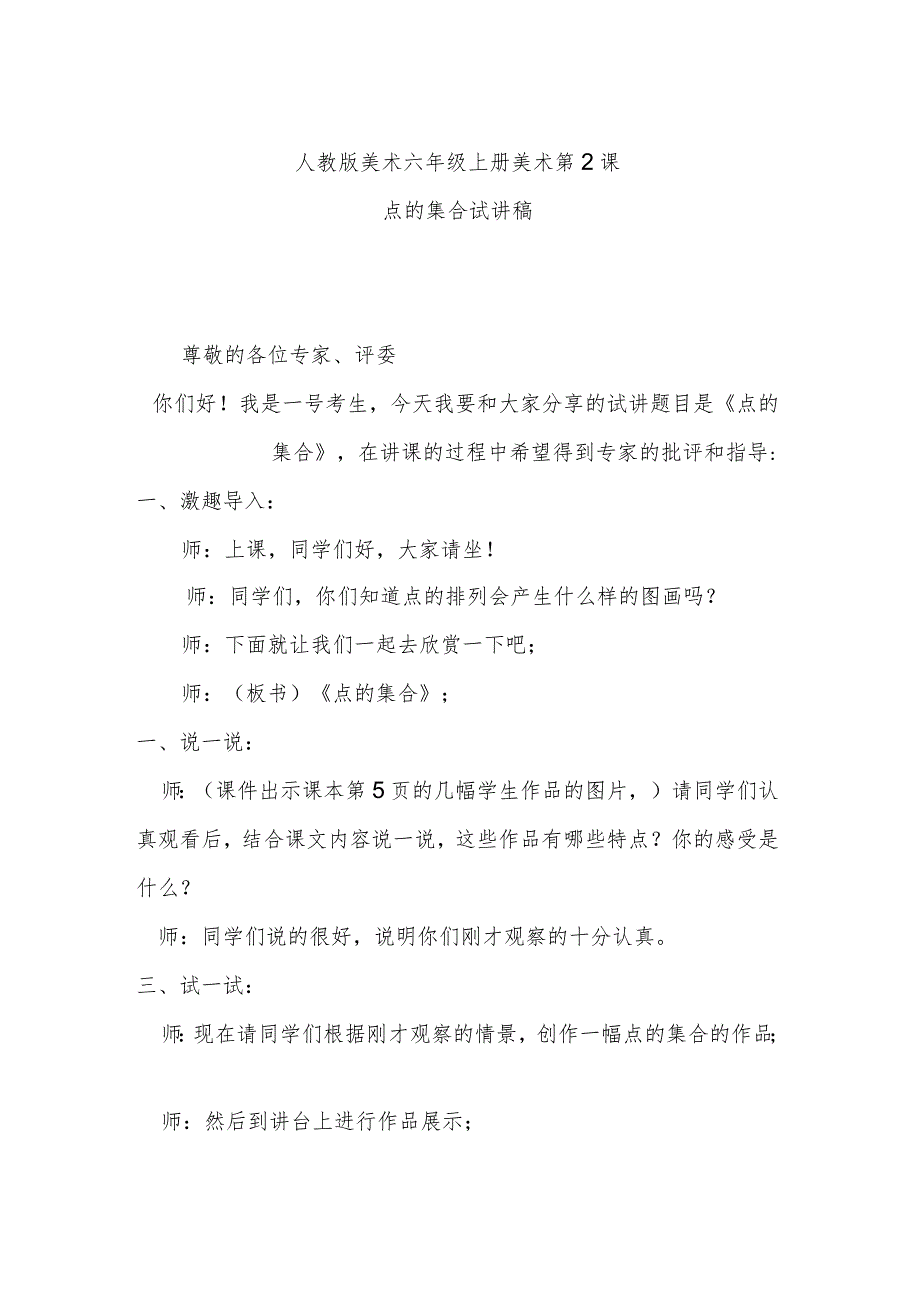 人教版美术六年级上册美术第2课
点的集合试讲稿
尊敬的各位专家、评委
你们好！我是一号考生，今天我要和大家分享的试讲题目是《点的
集合》，在讲课的过程中希望得到专家的批评和指导：
一、激趣导入：
师：上课，同学们好，大家请坐！
师：同学们，你们知道点的排列会产生什么样的图画吗？
师：下面就让我们一起去欣赏一下吧；
师：（板书）《点的集合》；
一、说一说：
师：（课件出示课本第5页的几幅学生作品的图片，）请同学们认
真观看后，结合课文内容说一说，这些作品有哪些特点？你的感受是
什么？
师：同学们说的很好，说明你们刚才观察的十分认真。
三、试一试：
师：现在请同学们根据刚才观察的情景，创作一幅点的集合的作品；
师：然后到讲台上进行作品展示；